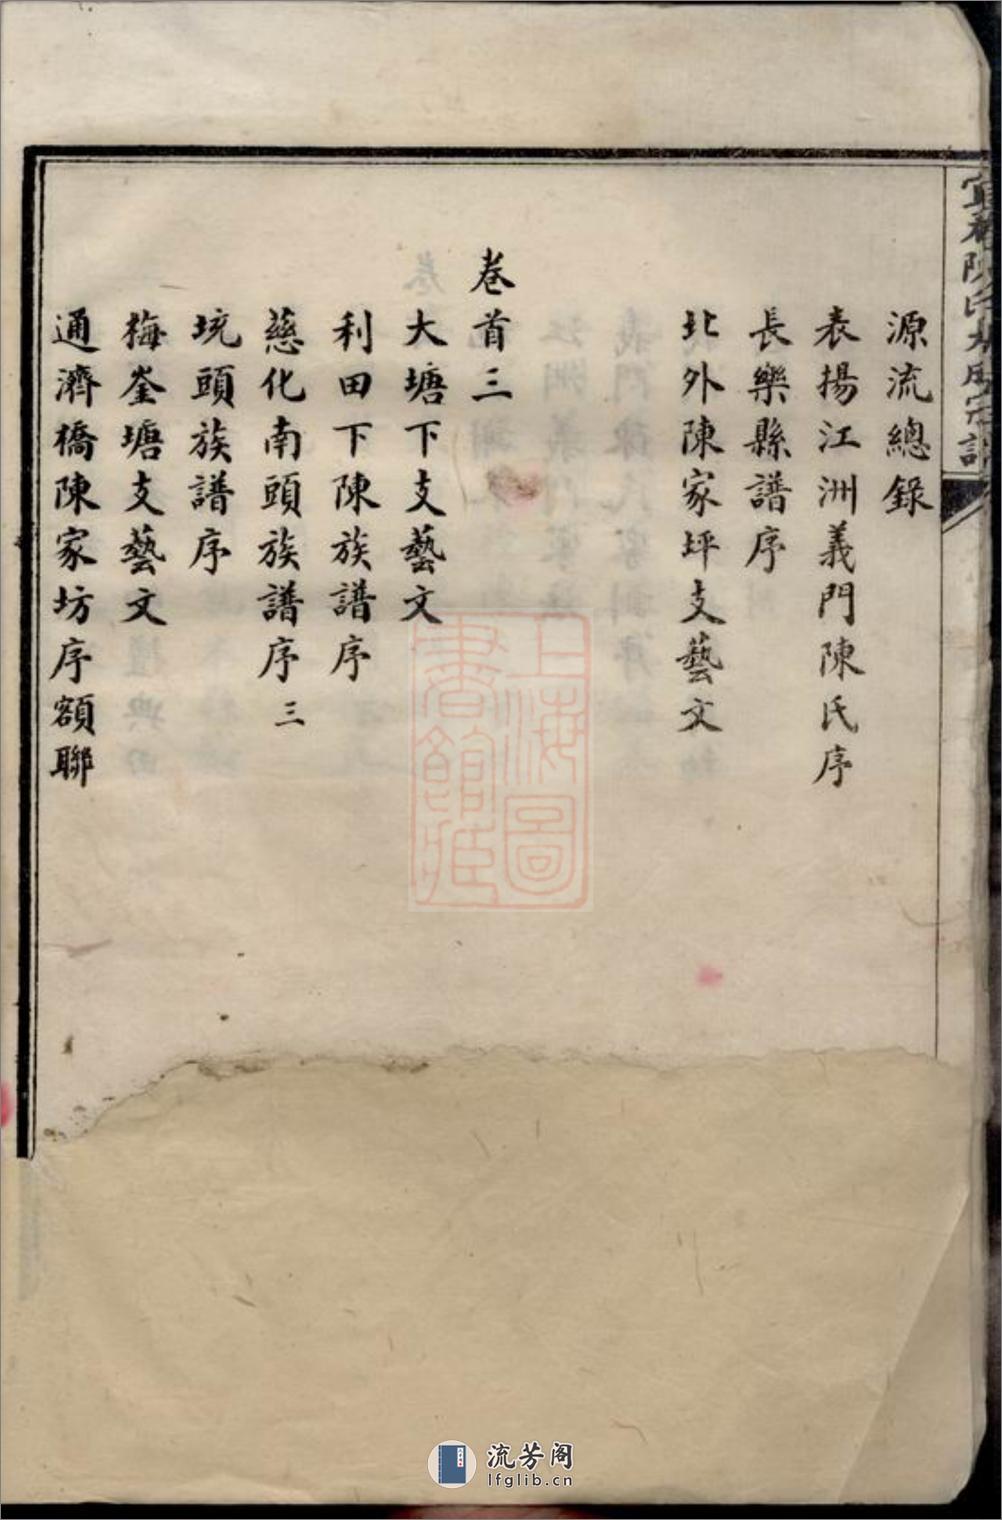 源流總錄
表揚江洲義門陳氏序
長樂縣譜序
北外陳家坪支藝文
卷首三
大塘下支藝文
利田下陳族譜序
慈化南頭族譜序 三
坈頭族譜序
梅崟塘支藝文
通濟橋陳家坊序額聯
上海圖書館藏
流芳阁
lfglib.cn